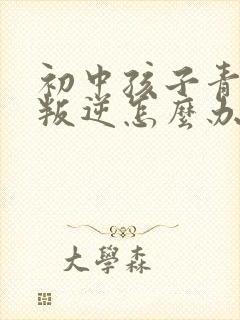 初中孩子青
叛逆怎麽办
大學森